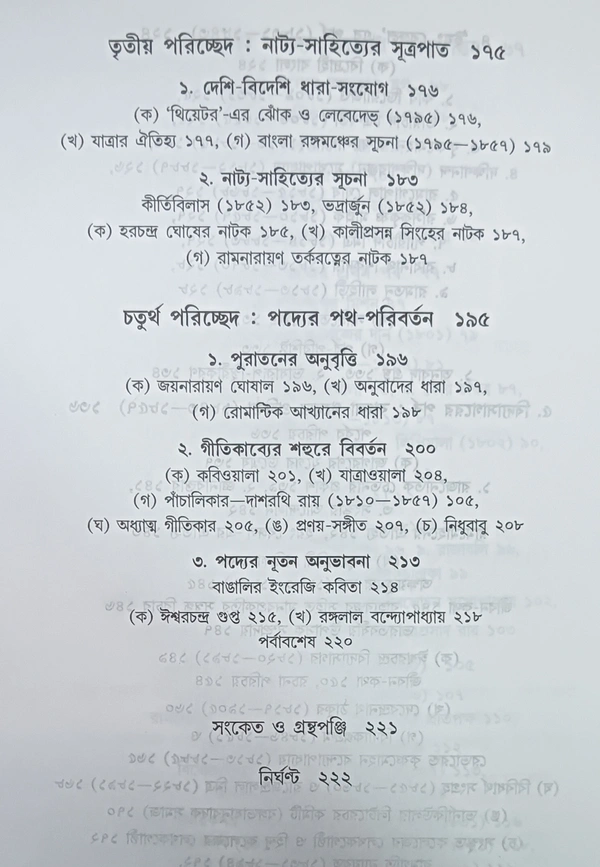 তৃতীয় পরিচ্ছেদ : নাট্য-সাহিত্যের সূত্রপাত ১৭৫
১. দেশি-বিদেশি ধারা-সংযোগ ১৭৬
(ক) ‘থিয়েটর’-এর ঝোঁক ও লেবেদেভ্ (১৭৯৫) ১৭৬,
(খ) যাত্রার ঐতিহ্য ১৭৭, (গ) বাংলা রঙ্গমঞ্চের সূচনা (১৭৯৫—১৮৫৭) ১৭৯
২. নাট্য-সাহিত্যের সূচনা ১৮৩
কীর্তিবিলাস (১৮৫২) ১৮৩, ভদ্রার্জুন (১৮৫২) ১৮৪,
(ক) হরচন্দ্র ঘোষের নাটক ১৮৫, (খ) কালীপ্রসন্ন সিংহের নাটক ১৮৭,
(গ) রামনারায়ণ তর্করত্নের নাটক ১৮৭
চতুর্থ পরিচ্ছেদ : পদ্যের পথ-পরিবর্তন ১৯৫
১. পুরাতনের অনুবৃত্তি ১৯৬
(ক) জয়নারায়ণ ঘোষাল ১৯৬, (খ) অনুবাদের ধারা ১৯৭,
(গ) রোমান্টিক আখ্যানের ধারা ১৯৮
২. গীতিকাব্যের শহুরে বিবর্তন ২০০
(ক) কবিওয়ালা ২০১, (খ) যাত্রাওয়ালা ২০৪,
(গ) পাঁচালিকার—দাশরথি রায় (১৮১০—১৮৫৭) ১০৫,
(ঘ) অধ্যাত্ম গীতিকার ২০৫, (ঙ) প্রণয়-সঙ্গীত ২০৭, (চ) নিধুবাবু ২০৮
৩. পদ্যের নূতন অনুভাবনা ২১৩
বাঙালির ইংরেজি কবিতা ২১৪
(ক) ঈশ্বরচন্দ্র গুপ্ত ২১৫, (খ) রঙ্গলাল বন্দ্যোপাধ্যায় ২১৮
পর্বাবশেষ ২২০
সংকেত ও গ্রন্থপঞ্জি ২২১
নির্ঘণ্ট ২২২